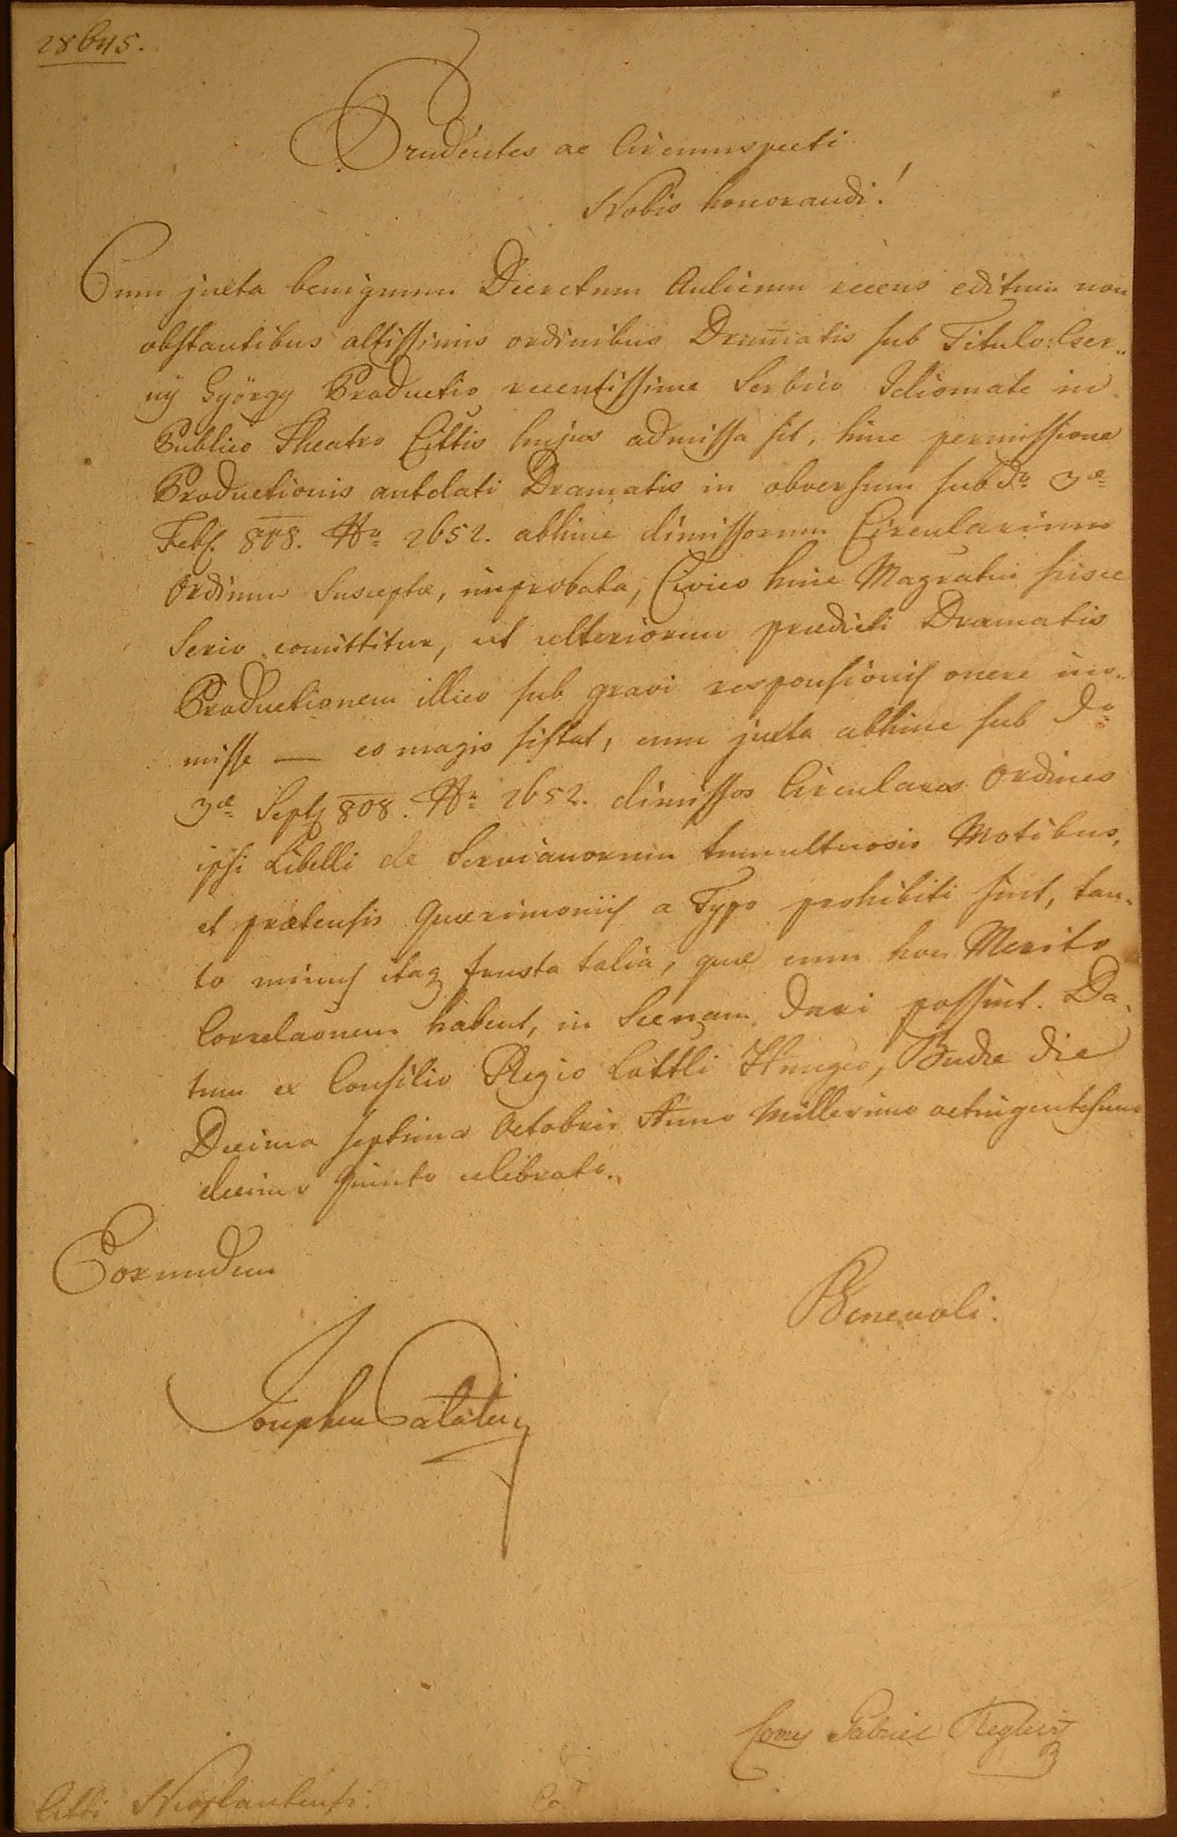 28645.
Prudentes ac Circumspecti
Nobis honorandi!
Cum juxta benignum Decretum Aulicum recens editum non
obstantibus altissimis ordinibus Dramatis sub Titulo: Cser-
ny György Productio recentissime Serbico Idiomate in
Publico Theatro Cittis hujus admissa sit, hinc permissione
Productionis antelati Dramatis in obversum sub do 3a
Feb. 808. No 2652. abhinc dimissorum Circularium
Ordinum Suscepta, improbata, Civico huic Magratui hisce
Serio comittitur, ut ulteriorem praedicti Dramatis
Productionem illico sub gravi responsionis onere ino-
misse — eo magis sistat, cum juxta abhinc sub do
3a Sept 808. No 2652. dimissos Circulares Ordines
ipsi Libelli de Servianorum tumultuosis Motibus,
et praetensis Quaerimoniis a Typo prohibiti sint, tan-
to minus itaq frusta talia, quae cum hoc Merito
Correlaonem habent, in Scenam dari possint. Da-
tum ex Consilio Regio Lottli Hungco, Budae die
Decima septima Octobris Anno Millesimo octingentesimo
decimo quinto celebrato.
Eorundem
Benevoli.
Josephus Palatinus
Comes Gabriel Keglevits
Citti Neoplantensi.